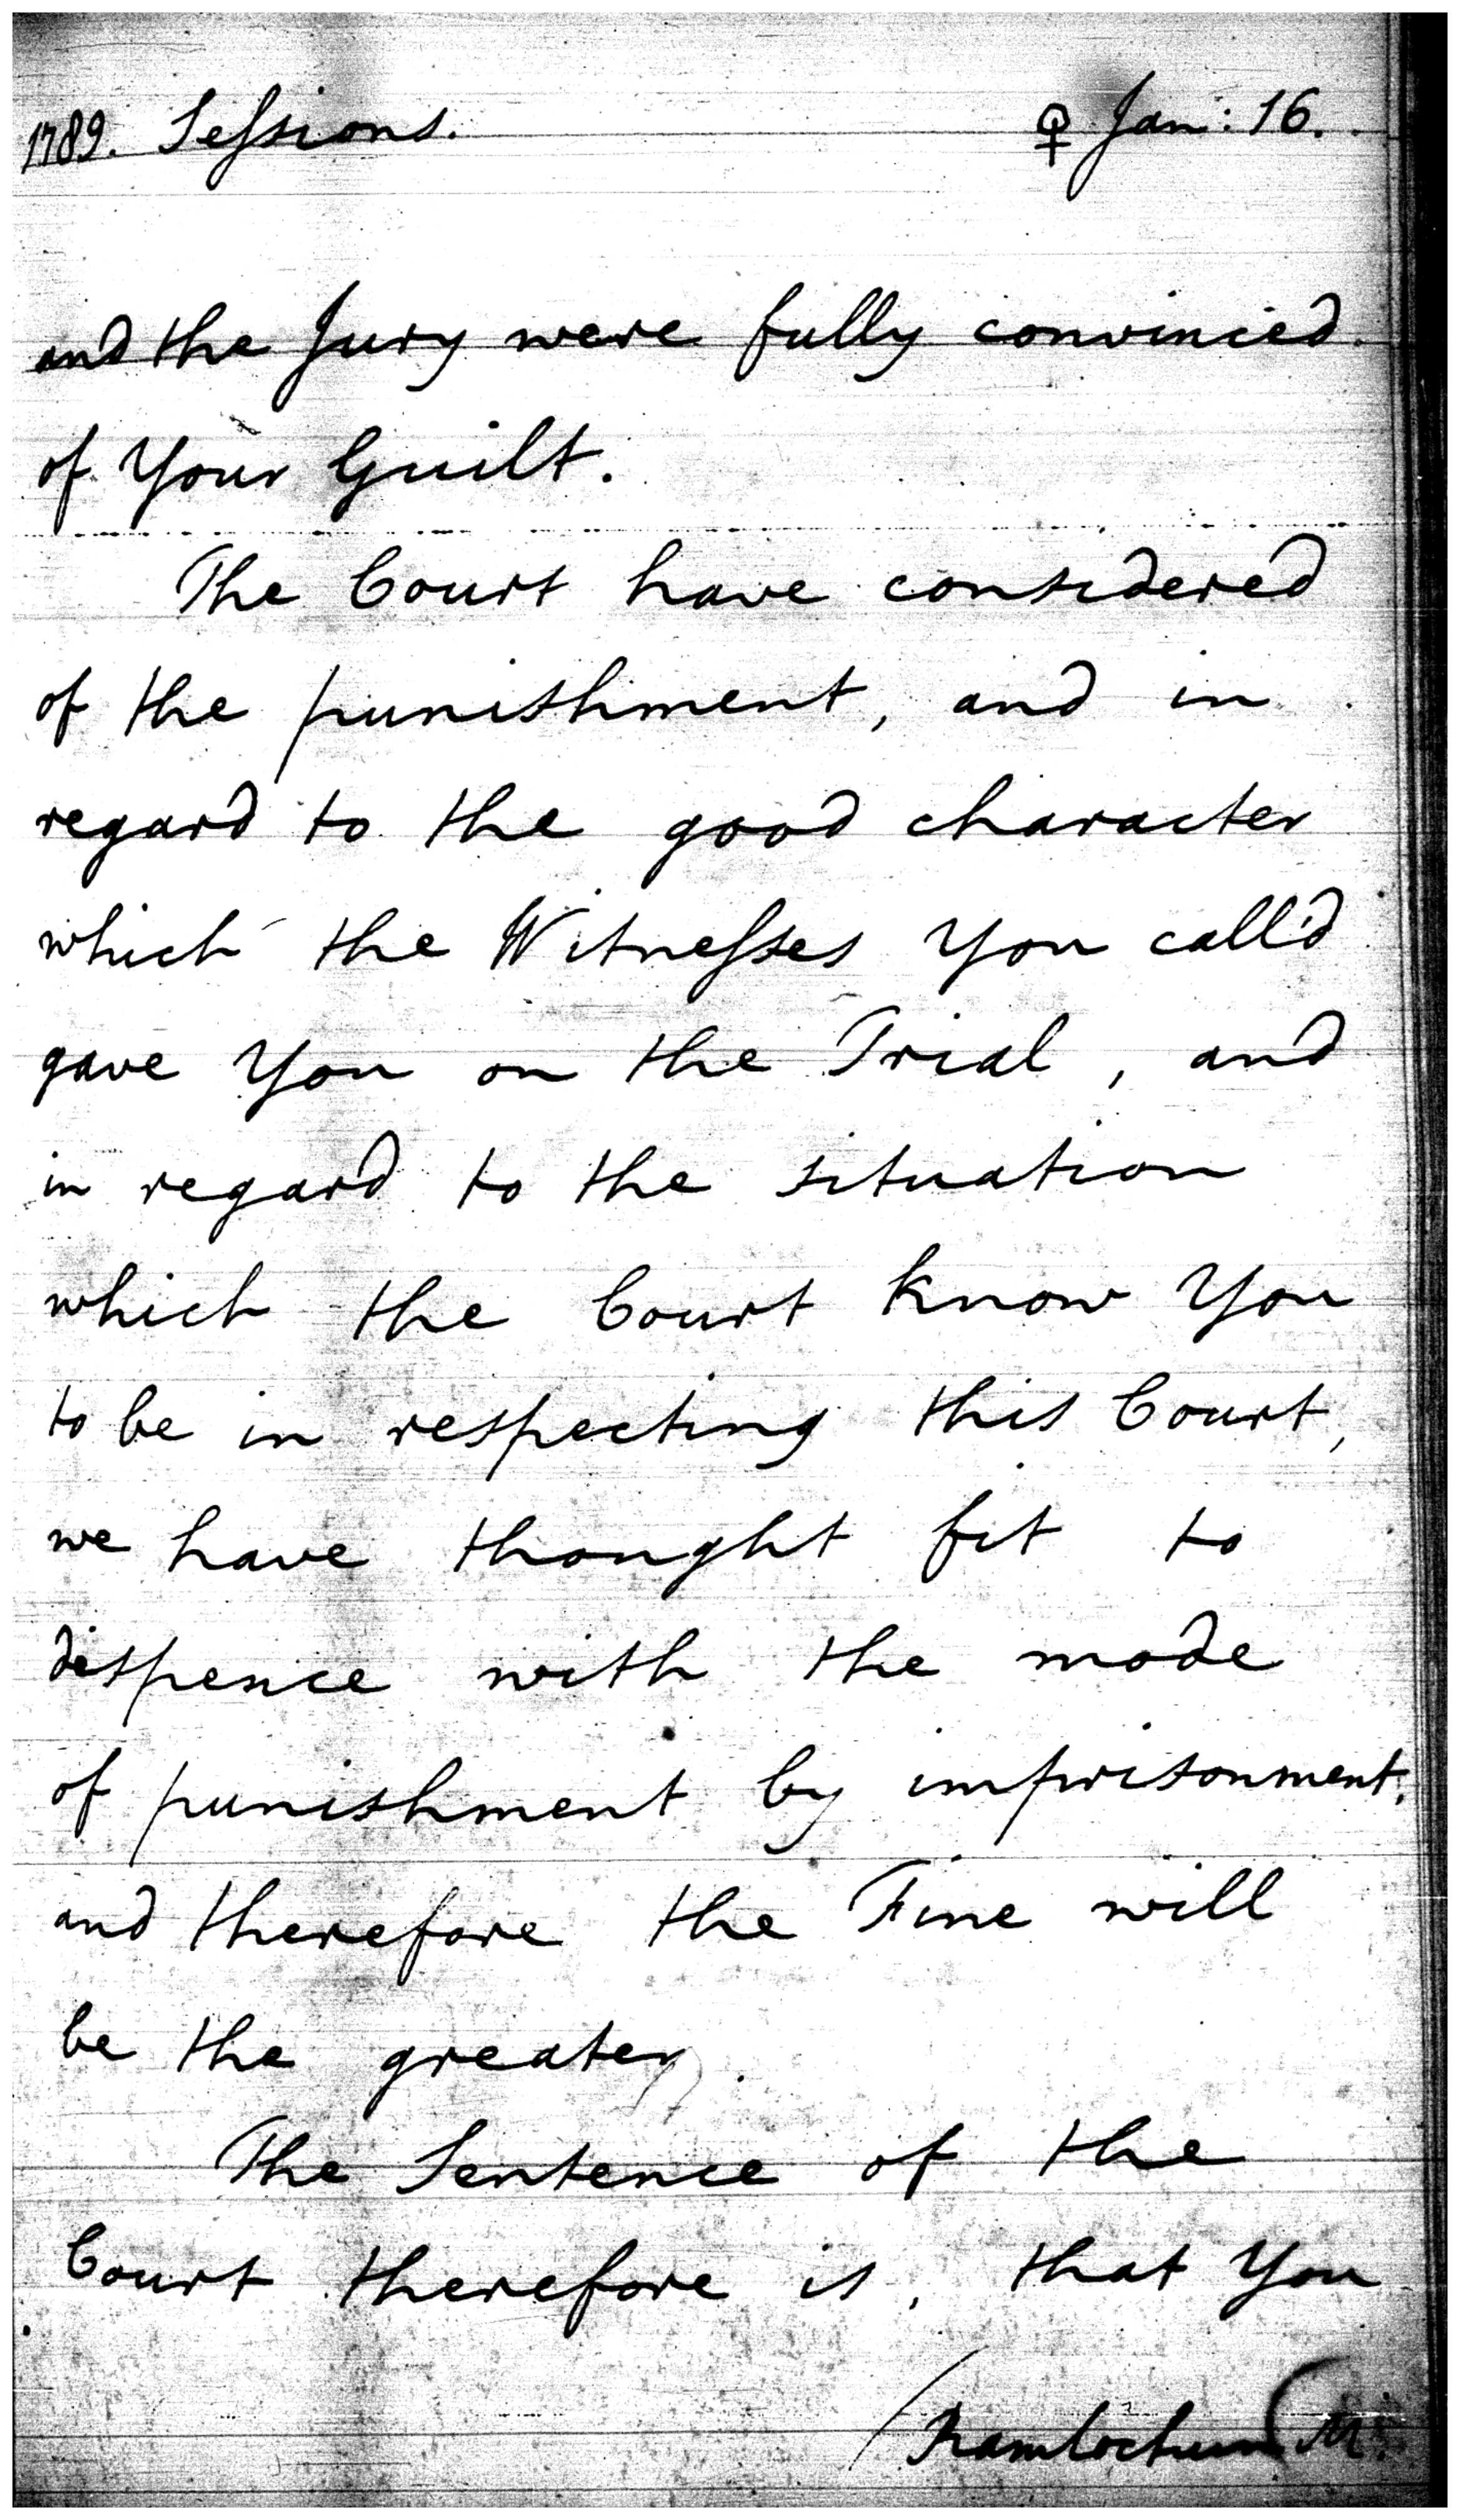 1789. Sessions. ♀ Jan: 16.
and the Jury were fully convinced
of Your Guilt.
The Court have considered
of the punishment, and in
regard to the good character
which the Witnesses You call'd
gave You on the Trial, and
in regard to the situation
which the Court know You
to be in respecting this Court,
we have thought fit to
dispence with the mode
of punishment by imprisonment.
and therefore the Fine will
be the greater.
The Sentence of the
Court therefore is, that You
(Ramlochun